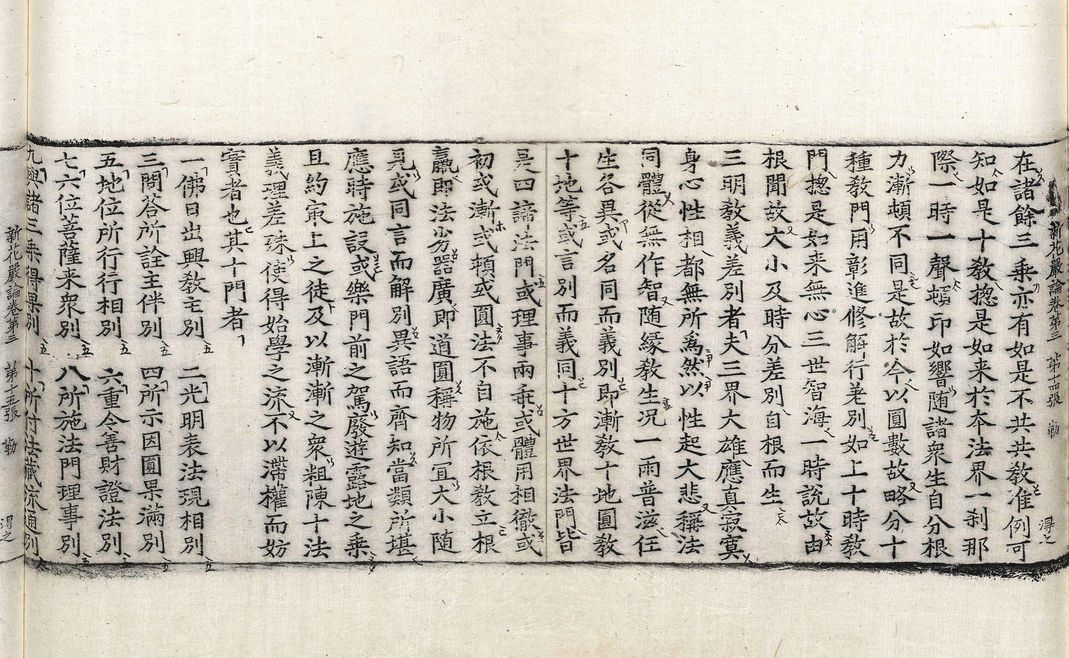 新花嚴論卷第三 第十四張 勒 淂之
在諸餘三乘亦有如是不共共教准例可
知如是十教揔是如来於夲法界一剎那
際一時一聲頓印如響随諸衆生自分根
力漸頓不同是故於今以圓數故略分十
種教門用彰進修解行差別如上十時教
門揔是如来無心三世智海一時說故由
根聞故大小及時分差別自根而生
三明教義差別者夫三界大雄應真寂寞
身心性相都無所為然以性起大悲稱法
同體從無作智随緣教生况一雨普滋任
生各異或名同而義別即漸教十地圓教
十地等或言別而義同十方世界法門皆
是四諦法門或理事兩乖或體用相徹或
初或漸或頓或圓法不自施依根教立根
羸即法劣器廣即道圓稱物所宜大小随
見或同言而解別異語而齊知當類所堪
應時施設或樂門前之駕廢遊露地之乘
且約冣上之徒及以漸漸之衆粗陳十法
義理差殊使得始學之流不以滯權而妨
實者也其十門者
一佛日出興教主別 二光明表法現相別
三問荅所詮主伴別 四所示因圓果滿別
五地位所行行相別 六重令善財證法別
七六位菩薩来衆別 八所施法門理事別
九與諸三乘得果別 十所付法藏流通別
新花嚴論卷第三 第十五張 勒 淂之